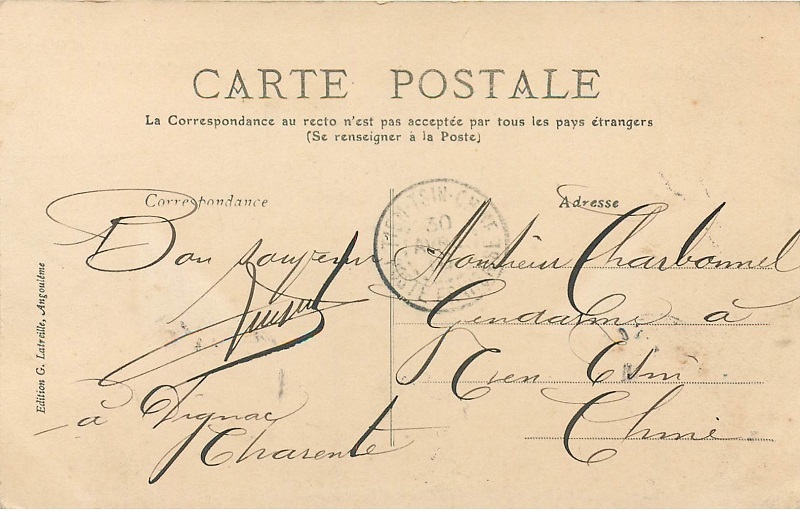 CARTE POSTALE
La Correspondance au recto n'est pas acceptée par tous les pays étrangers
(Se renseigner à la Poste)
Correspondance
Bon souvenir
à Dignac
Charente
Adresse
Monsieur Charbonnel
Gendarme à
Tien Tsin
Chine
TIEN-TSIN-CHINE
30
Edition G. Latreille, Angoulême